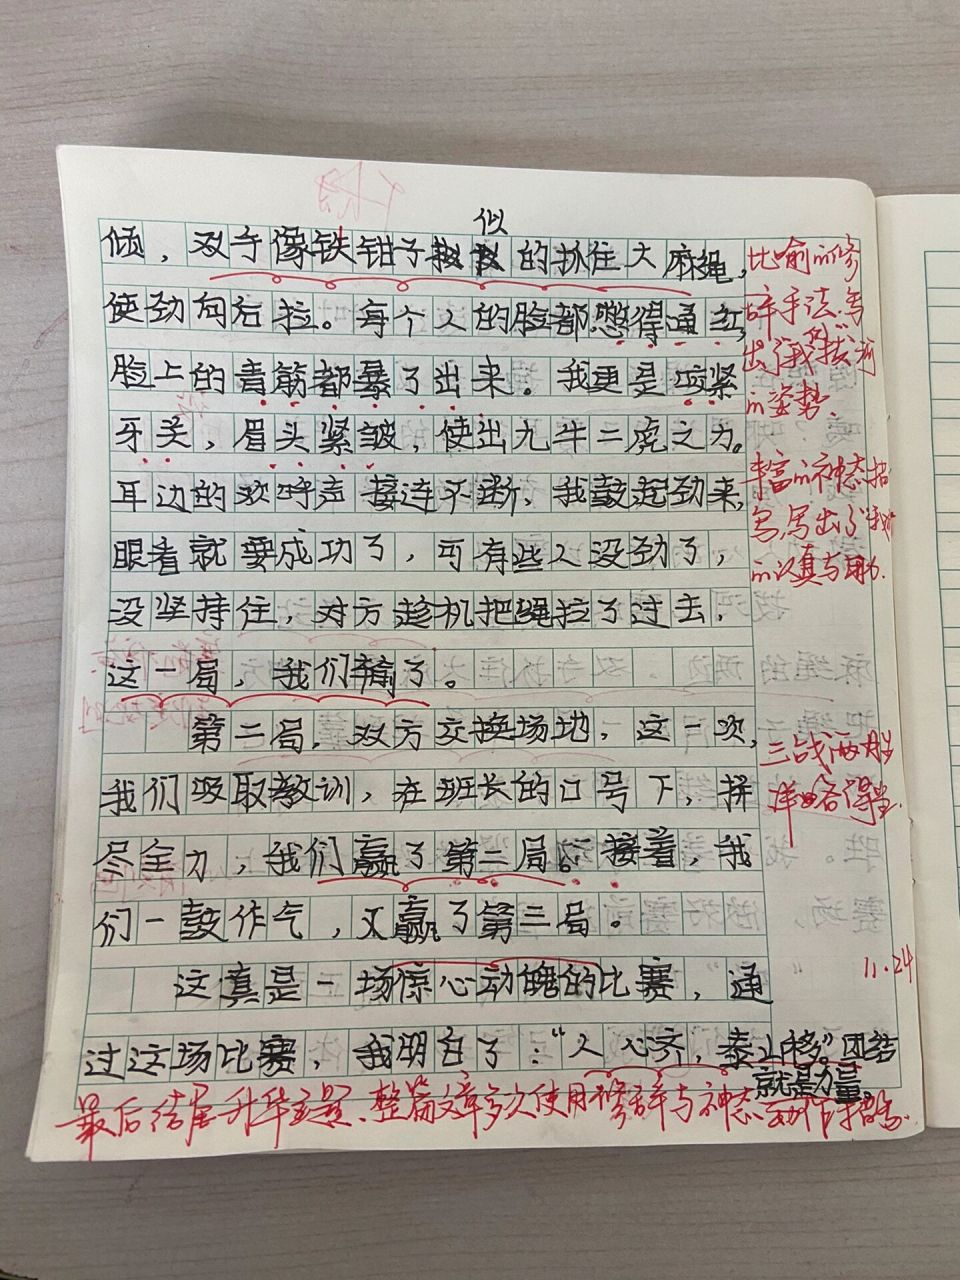 似
倾，双手像铁钳子的抓住大麻绳，
使劲向后拉。每个人的脸都憋得通红，
脸上的青筋都暴了出来。我更是咬紧
牙关，眉头紧皱，使出九牛二虎之力。
耳边的欢呼声接连不断，我鼓起劲来，
眼看就要成功了，可有些人没劲了，
没坚持住，对方趁机把绳拉了过去，
这一局，我们输了。
第二局，双方交换场地，这一次，
我们吸取教训，在班长的口号下，拼
尽全力，我们赢了第二局。接着，我
们一鼓作气，又赢了第三局。
这真是一场惊心动魄的比赛，通
过这场比赛，我明白了："人心齐，泰山移。"团结
就是力量。
比喻的修
辞手法，写
出了"我"拔河
的姿势。
丰富的神态描
写，写出了"我"
的认真与用力。
三战两胜
详略得当。
11.24
最后结尾升华主题，整篇文章多次使用修辞与神态动作描写。